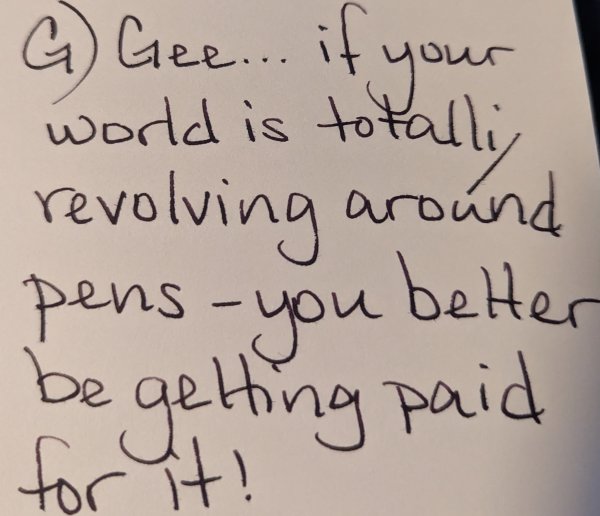 G) Gee... if your
world is totally
revolving around
pens - you better
be getting paid
for it!